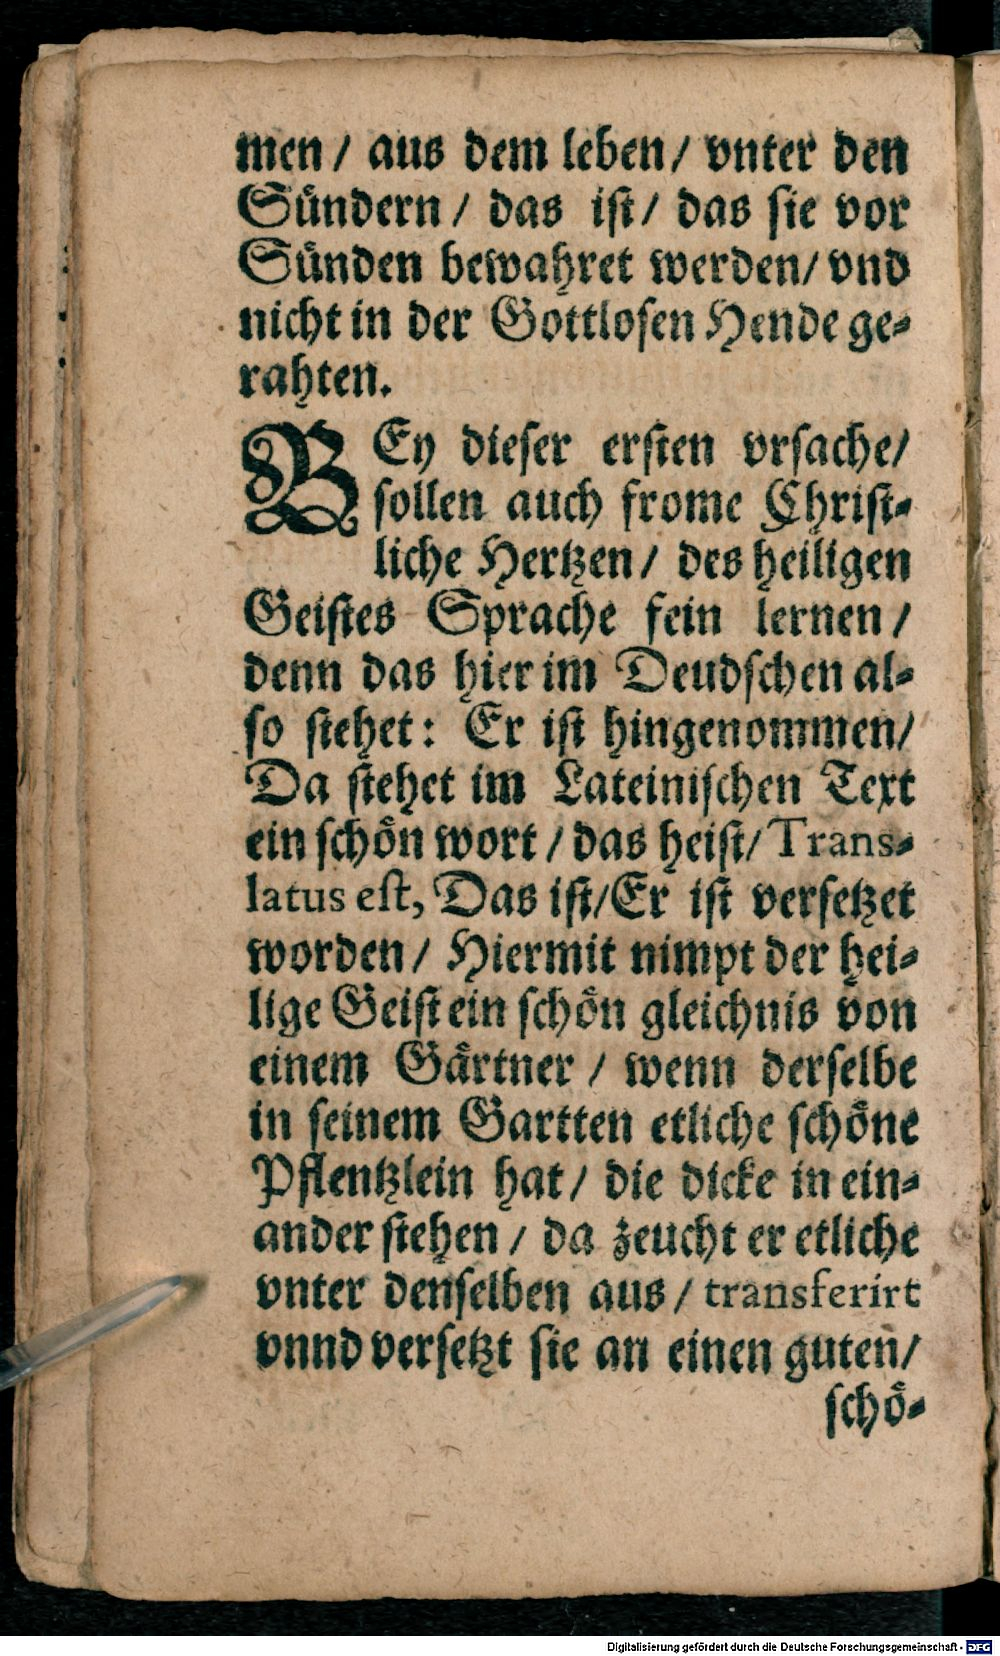 men / aus dem leben / vnter den
Sündern / das ist / das sie vor
Sünden bewahret werden / vnd
nicht in der Gottlosen Hende ge-
rahten.
BEy dieser ersten vrsache /
sollen auch frome Christ-
liche Hertzen / des heiligen
Geistes Sprache fein lernen /
denn das hier im Deudschen al-
so stehet: Er ist hingenommen /
Da stehet im Lateinischen Text
ein schön wort / das heist / Trans-
latus est, Das ist / Er ist versetzet
worden / Hiermit nimpt der hei-
lige Geist ein schön gleichnis von
einem Gärtner / wenn derselbe
in seinem Gartten etliche schöne
Pflentzlein hat / die dicke in ein-
ander stehen / da zeucht er etliche
vnter denselben aus / transferirt
vnnd versetzt sie an einen guten /
schö-
Digitalisierung gefördert durch die Deutsche Forschungsgemeinschaft - DFG